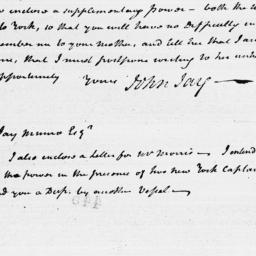 enclose a supplementary Power — both the
to York, so that you will have no Difficulty in
member me to your Mother, and tell her that I am
me, that I must postpone writing to her until
opportunity Yours John Jay —
Jay Munro Esqr
I also enclose a letter for Mr Morris — I intend
the power in the presence of two New York Captains
you a Dup. by another Vessel —